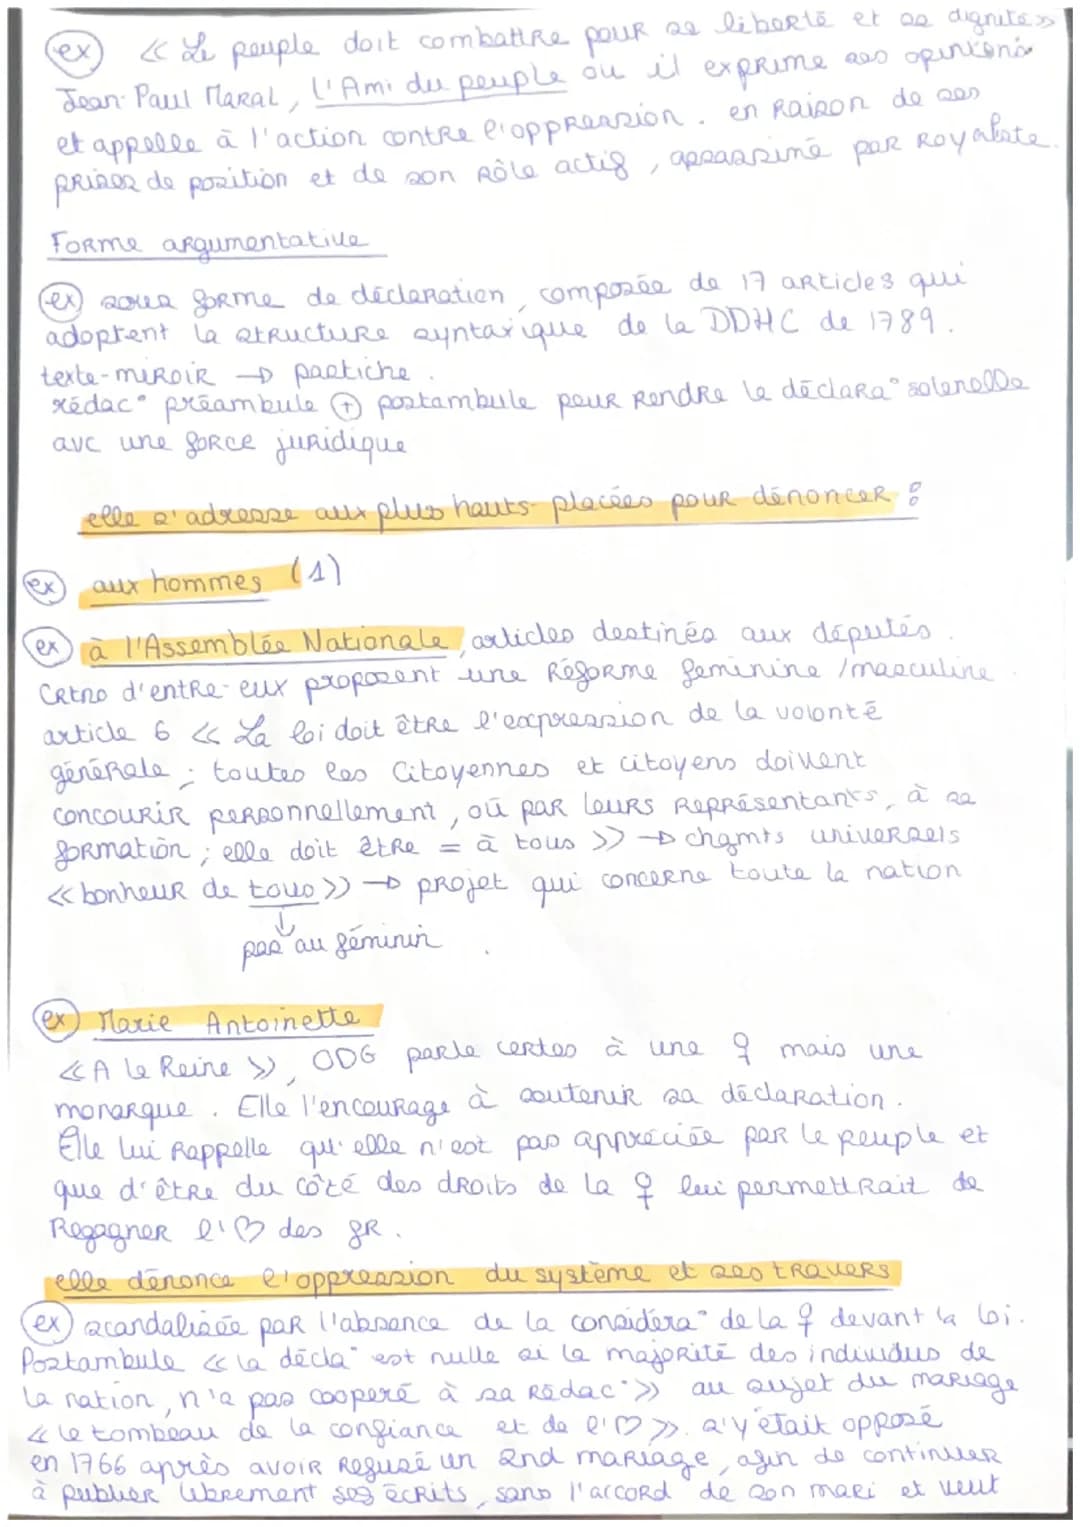 ex « Le peuple doit combattre pour sa liberté et sa dignité »
Jean-Paul Marat, L'Ami du peuple où il exprime ses opinions
et appelle à l'action contre l'oppression. en raison de ses
prises de position et de son rôle actif, assassiné par royaliste.
Forme argumentative
ex sous forme de déclaration, composée de 17 articles qui
adoptent la structure syntaxique de la DDHC de 1789.
texte-miroir → pastiche.
rédac° préambule ⊕ postambule pour rendre la déclara° solenelle
avc une force juridique
elle s'adresse aux plus hauts-placées pour dénoncer :
ex aux hommes (1)
ex à l'Assemblée Nationale, articles destinés aux députés.
Crtns d'entre-eux proposent une réforme feminine / masculine
article 6 « La loi doit être l'expression de la volonté
générale ; toutes les Citoyennes et citoyens doivent
concourir personnellement, où par leurs représentants, à sa
formation ; elle doit être = à tous » → chgmts universels
« bonheur de tous » → projet qui concerne toute la nation
↓
pas au féminin
ex Marie Antoinette
« A la Reine », ODG parle certes à une ♀ mais une
monarque. Elle l'encourage à soutenir sa déclaration.
Elle lui rappelle qu'elle n'est pas appréciée par le peuple et
que d'être du côté des droits de la ♀ lui permettrait de
Regagner l'♡ des fr.
elle dénonce l'oppression du système et ses travers
ex scandalisée par l'absence de la considéra° de la ♀ devant la loi.
Postambule « la décla° est nulle si la majorité des individus de
la nation, n'a pas cooperé à sa rédac° » au sujet du mariage
« le tombeau de la confiance et de l'♡ ». s'y était opposé
en 1766 après avoir refusé un 2nd mariage, afin de continuer
à publier librement ses écrits, sans l'accord de son mari et veut